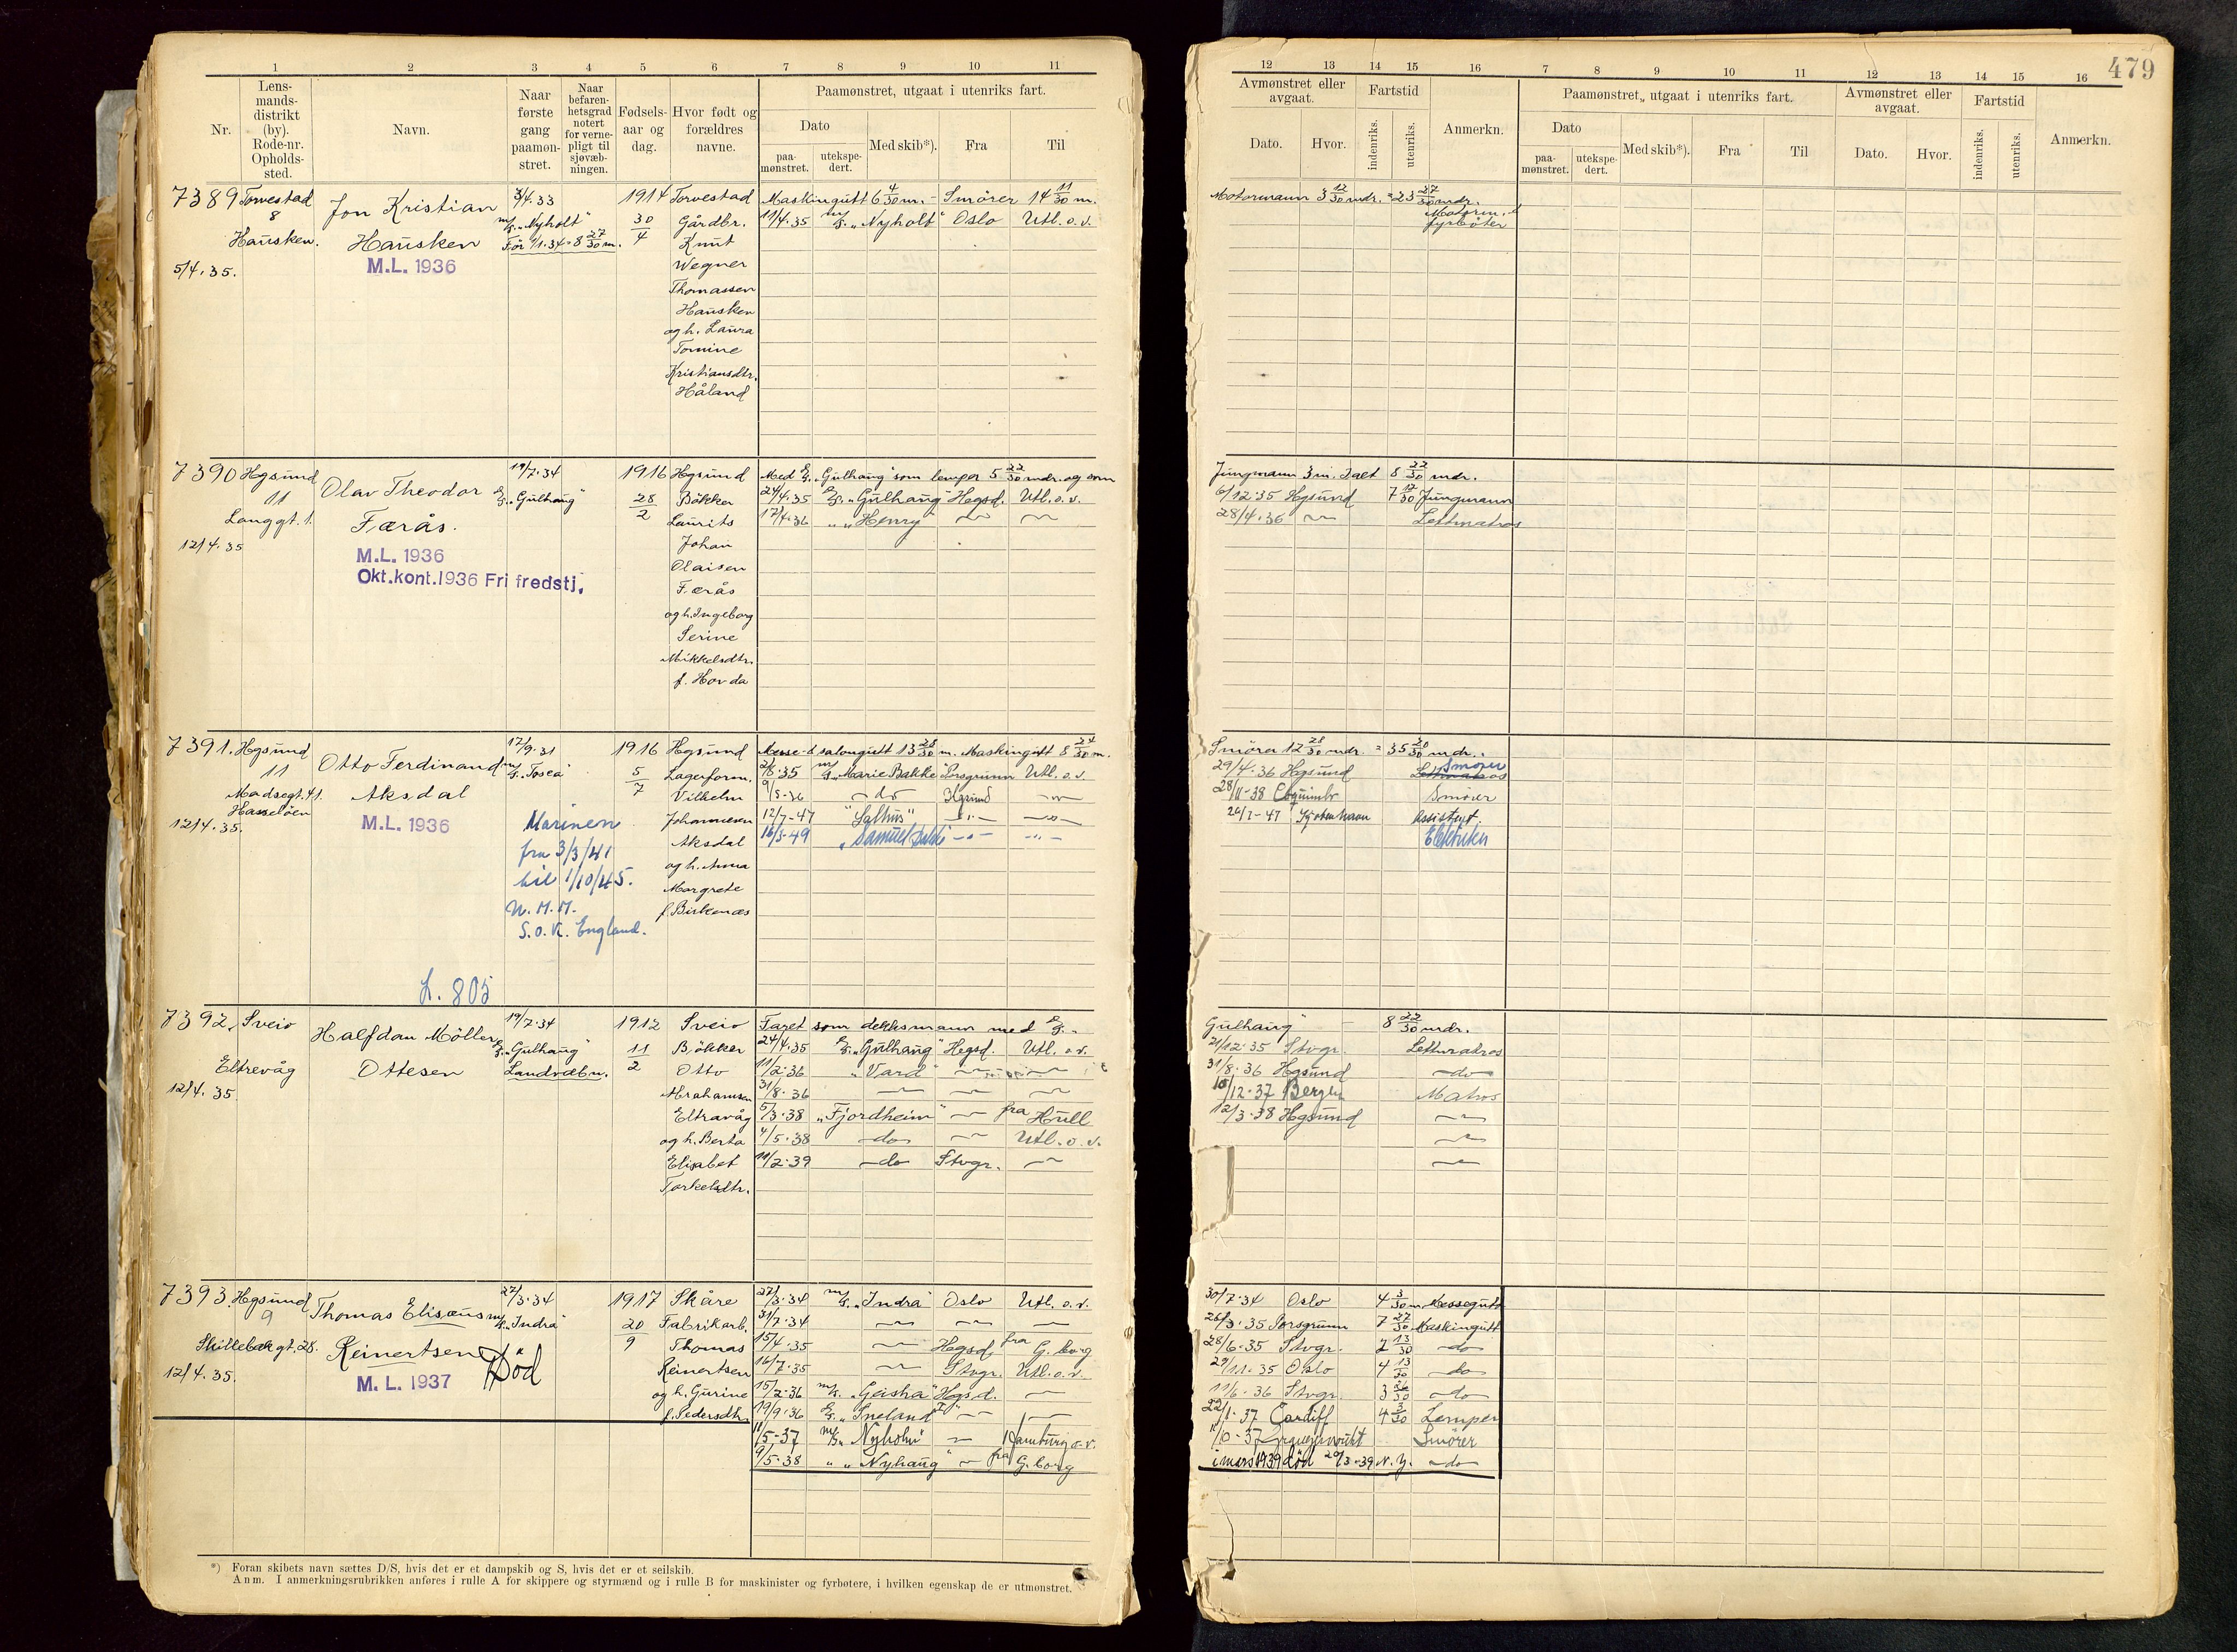 479
1 2 3 4 5 6 7 8 9 10 11
Nr.
Lens-
mands-
distrikt
(by).
Rode-nr.
Opholds-
sted.
Navn.
Naar
første
gang
paamøn-
stret.
Naar
befaren-
hetsgrad
notert
for verne-
pligt til
sjøvæb-
ningen.
Fødsels-
aar og
dag.
Hvor født og
forældres
navne.
Paamønstret, utgaat i utenriks fart.
Dato
paa-
mønstret.
utekspe-
dert.
Med skib*).
Fra
Til
12 13 14 15 16 7 8 9 10 11 12 13 14 15 16
Avmønstret eller
avgaat.
Dato.
Hvor.
Fartstid
indenriks.
utenriks.
Anmerkn.
Paamønstret, utgaat i utenriks fart.
Dato
paa-
mønstret.
utekspe-
dert.
Med skib*).
Fra
Til
Avmønstret eller
avgaat.
Dato.
Hvor.
Fartstid
indenriks.
utenriks.
Anmerkn.
7389 Torvestad
8
Hausken.
5/4.35.
Jon Kristian
Hausken
M.L. 1936
3/4.33
m/s. "Nyholt"
Før 1/1.34 = 8 27/30 m.
1914
30
4
Torvestad
Gårdbr.
Knut
Wegner
Thomassen
Hausken
og h. Laura
Tomine
Kristiansdtr.
Håland
Maskingutt 6 4/30 m. - Smører 14 11/30 m.
11/4.35 m/s. "Nyholt" Oslo Utl. o.v.
Motormann 3 12/30 mdr. = 23 27/30 mdr.
Motorm. &
fyrbøter
7390 Hgsund
11
Langgt. 1.
12/4.35
Olav Theodor
Færås.
M.L. 1936
Okt.kont.1936 Fri fredstj.
19/7.34
D/S. "Gulhaug"
1916
28
2
Hgsund
Bökker
Laurits
Johan
Olaisen
Færås
og h. Ingeborg
Serine
Mikkelsdtr.
f. Horda
Med D/S. "Gulhaug" som lemper 5 22/30 mdr. og som
24/4.35 D/S. "Gulhaug" Hegsd. Utl. o.v.
17/4.36 " " Henry"
Jungmann 3 m. Ialt 8 22/30 mdr.
6/12.35 Hgsund 7 12/30 Jungmann
28/4.36 Lettmatros
7391. Hgsund
11
Madsegt. 41.
Hasseløen
12/4.35.
Otto Ferdinand
Aksdal
M.L. 1936
17/9.31
m/s. "Tosca"
Marinen
fra 3/3/41
til 1/10/45.
N.M.M.
S.O.K. England.
L. 805
1916
5
7
Hgsund
Lagerform.
Vilhelm
Johannesen
Aksdal
og h. Anna
Margrete
f. Birkenæs
Messe- & salongutt 13 28/30 m. Maskingutt 8 24/30 m.
2/6.35 m/s. "Marie Bakke" Porsgrunn Utl. o.v.
9/5-36 -do- Hgsund
12/7-47 "Salhus"
16/3-49 "Samuel Bakke"
Smører 12 28/30 mdr. = 35 20/30 mdr.
29/4.36 Hgsund Lettmatros Smører
28/11-38 Coquimbo Smører
24/7-47 Kjøbenhavn Assistent.
Elektriker
7392. Sveio
Eltrevåg
12/4.35
Halfdan Möller
Ottesen
19/7.34
D/S. "Gulhaug"
Landvæbn.
1912
11
2
Sveio
Bökker
Otto
Abrahamsen
Eltravåg
og h. Berta
Elisabet
Torkelsdtr.
Faret som dekksmann med D/S. "
24/4.35 D/S. "Gulhaug" Hegsd. Utl. o.v.
11/2.36 "Vard"
31/8.36
5/3.38 "Fjordheim" fra Hull
4/5.38 -do- Utl. o.v.
11/2.39 -do- Stvgr.
Gulhaug" 8 22/30 mdr.
21/12.35 Stvgr. Lettmatros
31/8.36 Hgsund -do-
10/12.37 Bergen Matros
12/3.38 Hgsund
7393. Hgsund
9
Skillebekgt. 28.
12/4.35.
Thomas Elisæus
Reinertsen
Död
M. L. 1937
27/3.34
m/s. "Indra"
1917
20
9
Skåre
Fabrikarb.
Thomas
Reinertsen
og h. Gurine
f. Pedersdtr.
27/3.34 m/s. "Indra" Oslo Utl. o.v.
31/7.34
15/4.35 Hegsd. fra G. borg
16/7.35 Stvgr. Utl. o.v.
15/2.36 m/s. "Geisha" Hgsd.
19/9.36 D/S. "Sneland I"
11/5-37 m/s. "Nyholm" Hamburg o.v.
9/5.38 " " Nyhaug" fra G. borg
30/7.34 Oslo 4 3/30 m. Messegutt
26/3.35 Porsgrunn 7 27/30 Maskingutt
28/6.35 Stvgr. 2 13/30 -do-
29/11.35 Oslo 4 13/30 -do-
11/6.36 Stvgr. 3 26/30 -do-
22/1.37 Cardiff 4 3/30 Lemper
Smører
i mars 1939 död 20/3-39 N.Y. -do-
*) Foran skibets navn sættes D/S, hvis det er et dampskib og S, hvis det er et seilskib.
Anm. I anmerkningsrubrikken anføres i rulle A for skippere og styrmænd og i rulle B for maskinister og fyrbøtere, i hvilken egenskap de er utmønstret.